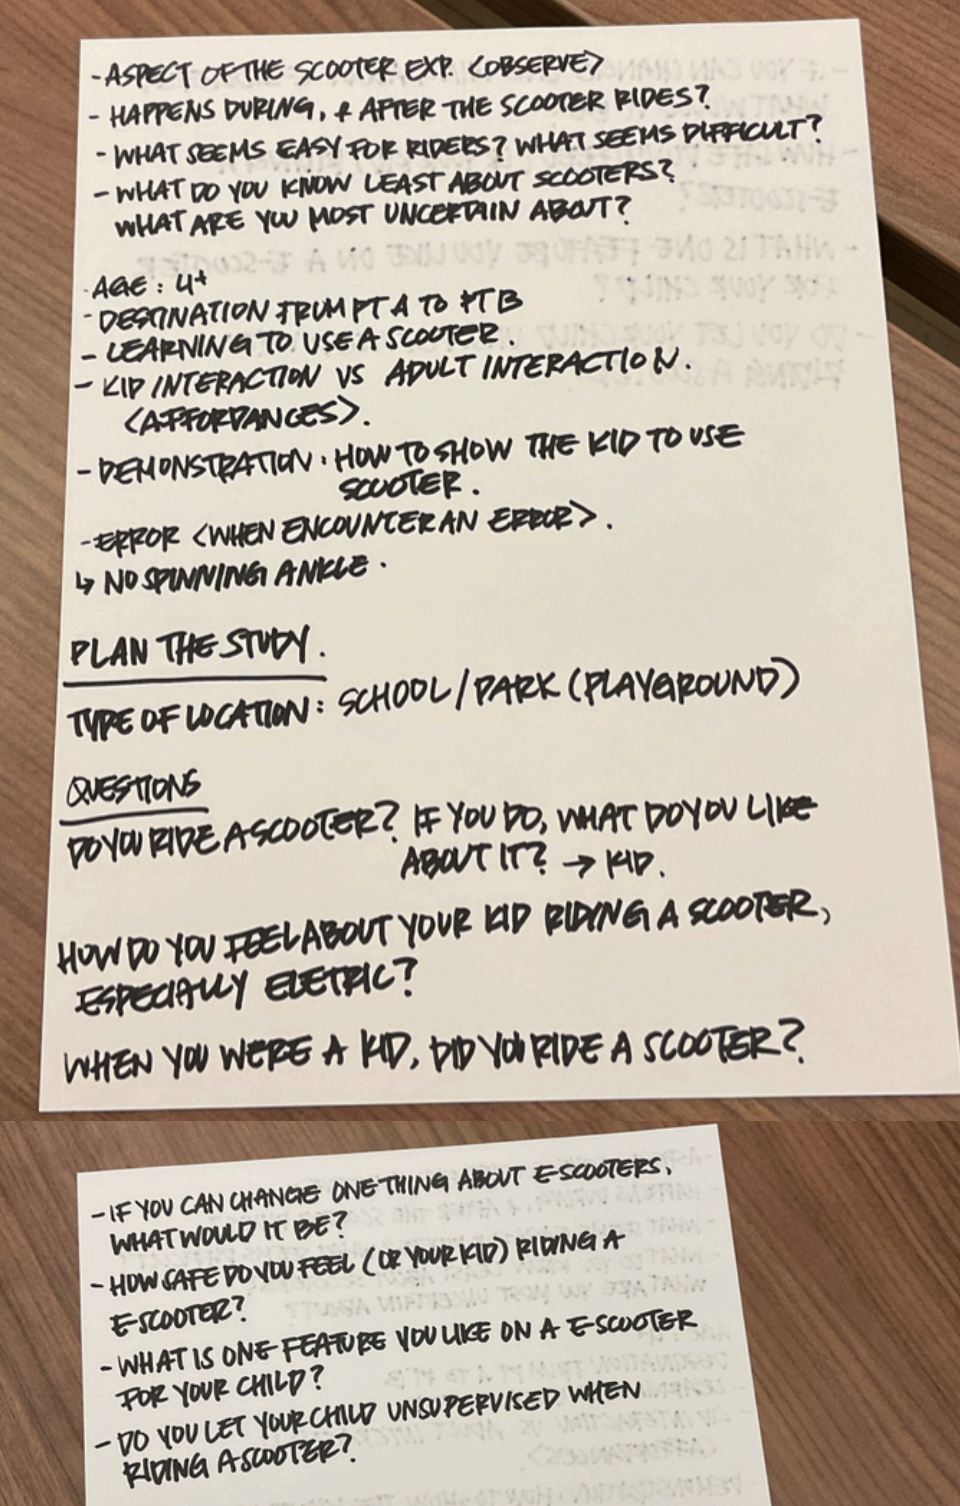 - ASPECT OF THE SCOOTER EXP. <OBSERVE>
- HAPPENS DURING, & AFTER THE SCOOTER RIDES?
- WHAT SEEMS EASY FOR RIDERS? WHAT SEEMS DIFFICULT?
- WHAT DO YOU KNOW LEAST ABOUT SCOOTERS?
WHAT ARE YOU MOST UNCERTAIN ABOUT?
- AGE: 4+
- DESTINATION FRUM PT A TO PT B
- LEARNING TO USE A SCOOTER.
- KID INTERACTION VS ADULT INTERACTION.
<AFFORDANCES>.
- DEMONSTRATION: HOW TO SHOW THE KID TO USE
SCOOTER.
- ERROR <WHEN ENCOUNTER AN ERROR>.
↳ NO SPINNING ANKLE.
PLAN THE STUDY.
TYPE OF LOCATION: SCHOOL/PARK (PLAYGROUND)
QUESTIONS
DO YOU RIDE A SCOOTER? IF YOU DO, WHAT DO YOU LIKE
ABOUT IT? → KID.
HOW DO YOU FEEL ABOUT YOUR KID RIDING A SCOOTER,
ESPECIALLY ELETRIC?
WHEN YOU WERE A KID, DID YOU RIDE A SCOOTER?
- IF YOU CAN CHANGE ONE THING ABOUT E-SCOOTERS,
WHAT WOULD IT BE?
- HOW SAFE DO YOU FEEL (OR YOUR KID) RIDING A
E-SCOOTER?
- WHAT IS ONE FEATURE YOU LIKE ON A E-SCOOTER
FOR YOUR CHILD?
- DO YOU LET YOUR CHILD UNSUPERVISED WHEN
RIDING A SCOOTER?